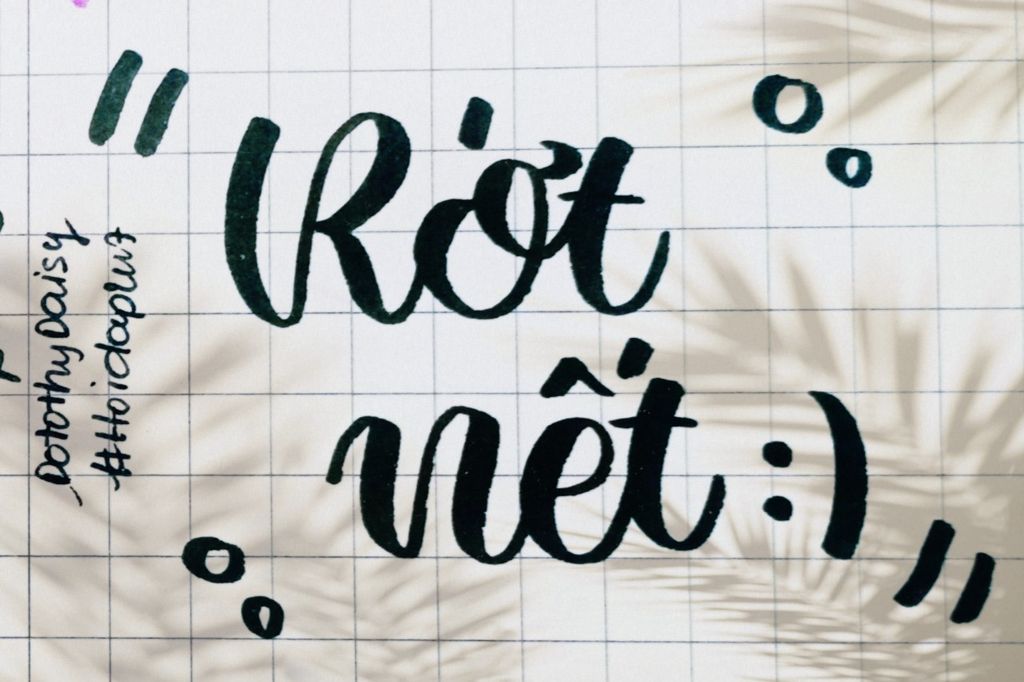 "Rớt
nết :)"
DotothyDaisy
#Hoidapluv7